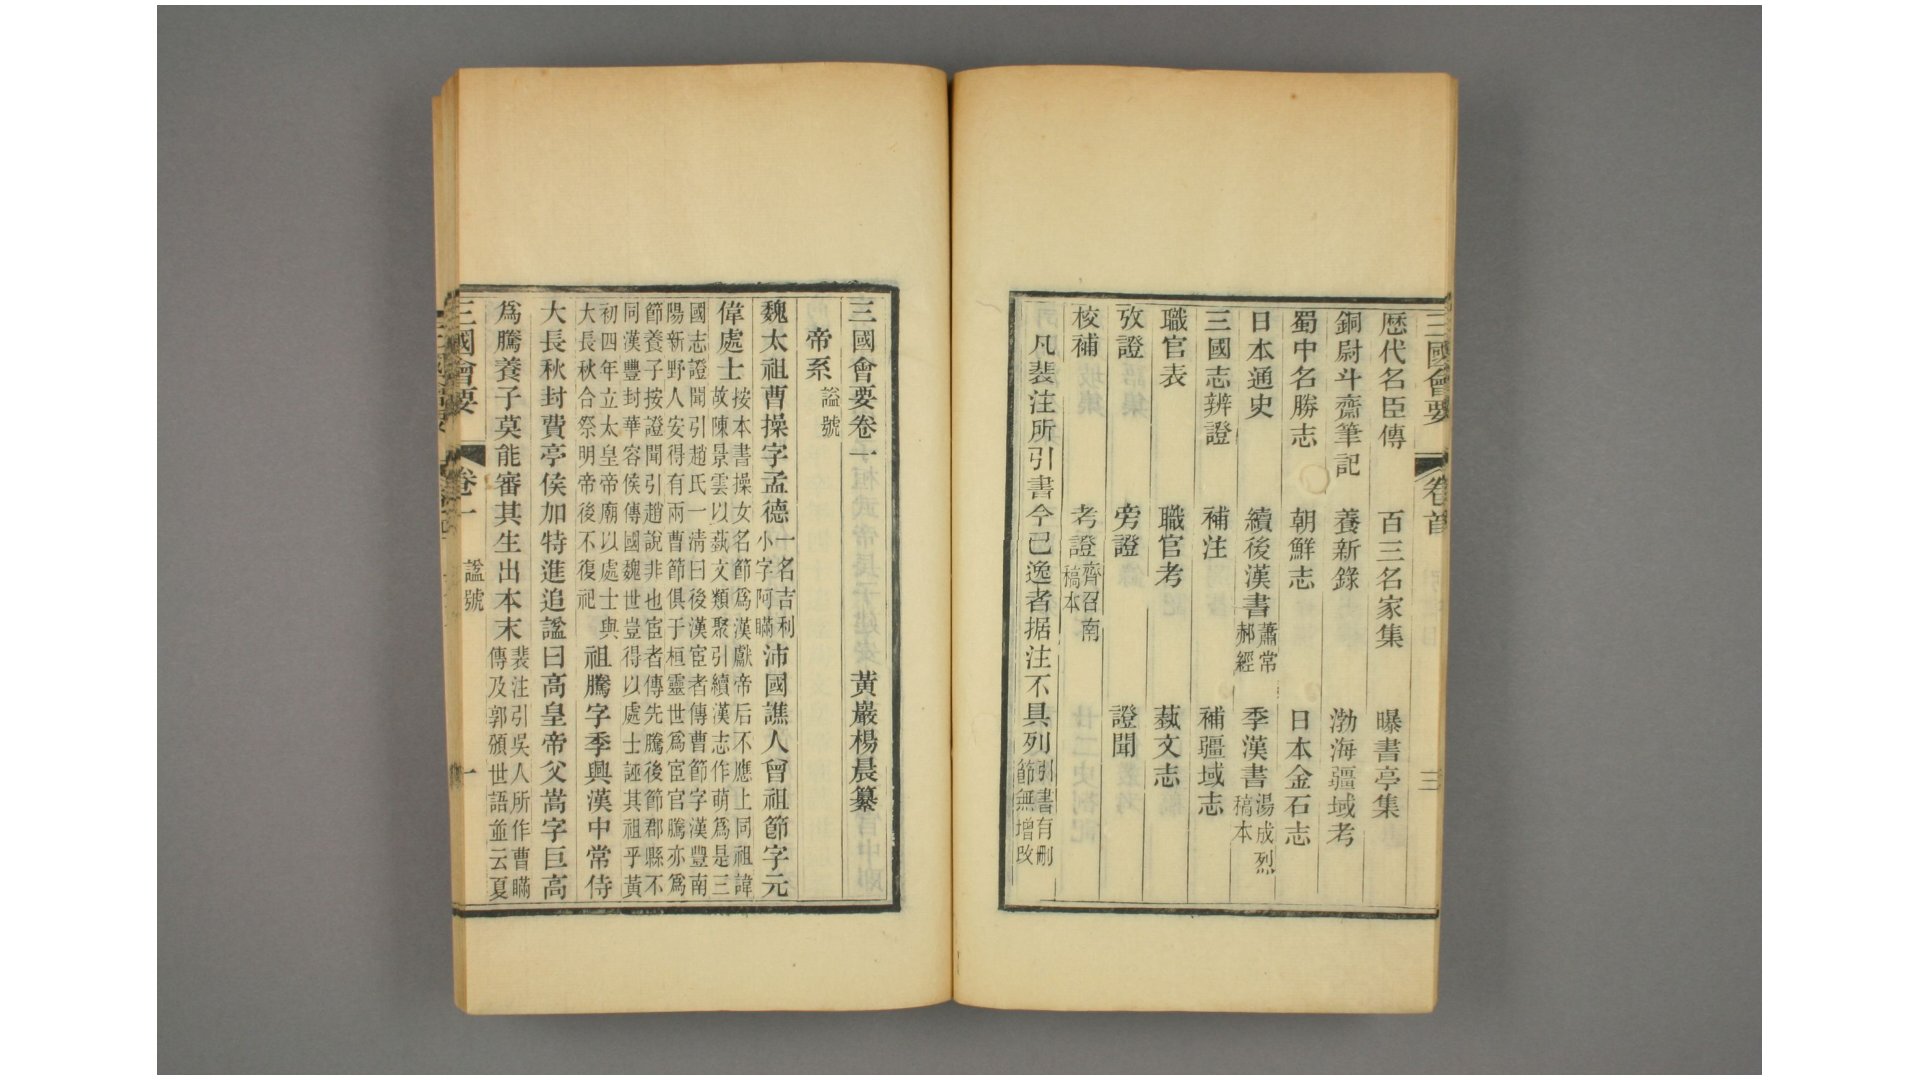 三國會要
卷首
三
歴代名臣傳 百三名家集 曝書亭集
銅尉斗齋筆記 養新錄 渤海疆域考
蜀中名勝志 朝鮮志 日本金石志
日本通史 續後漢書蕭常郝經 季漢書湯成烈稿本
三國志辨證 補注 補疆域志
職官表 職官考 蓺文志
攷證 旁證 證聞
校補 考證齊召南稿本
凡裴注所引書今已逸者据注不具列引書有刪節無增改
三國會要卷一 黃巖楊晨纂
帝系謚號
魏太祖曹操字孟德一名吉利小字阿瞞沛國譙人曾祖節字元
偉處士按本書操女名節為漢獻帝后不應上同祖諱故陳景雲以蓺文類聚引續漢志作萌為是三
國志證聞引趙氏一清曰後漢宦者傳曹節字漢豐南陽新野人安得有兩曹節俱于桓靈世為宦官騰亦為
節養子按證聞引趙說非也宦者傳先騰後節郡縣不同漢豐封華容侯傳國魏世豈得以處士誣其祖乎黃
初四年立太皇帝廟以處士與大長秋合祭明帝後不復祀祖騰字季興漢中常侍
大長秋封費亭侯加特進追謚曰高皇帝父嵩字巨高
為騰養子莫能審其生出本末裴注引吳人所作曹瞞傳及郭頒世語並云夏
三國會要
卷一
謚號
一